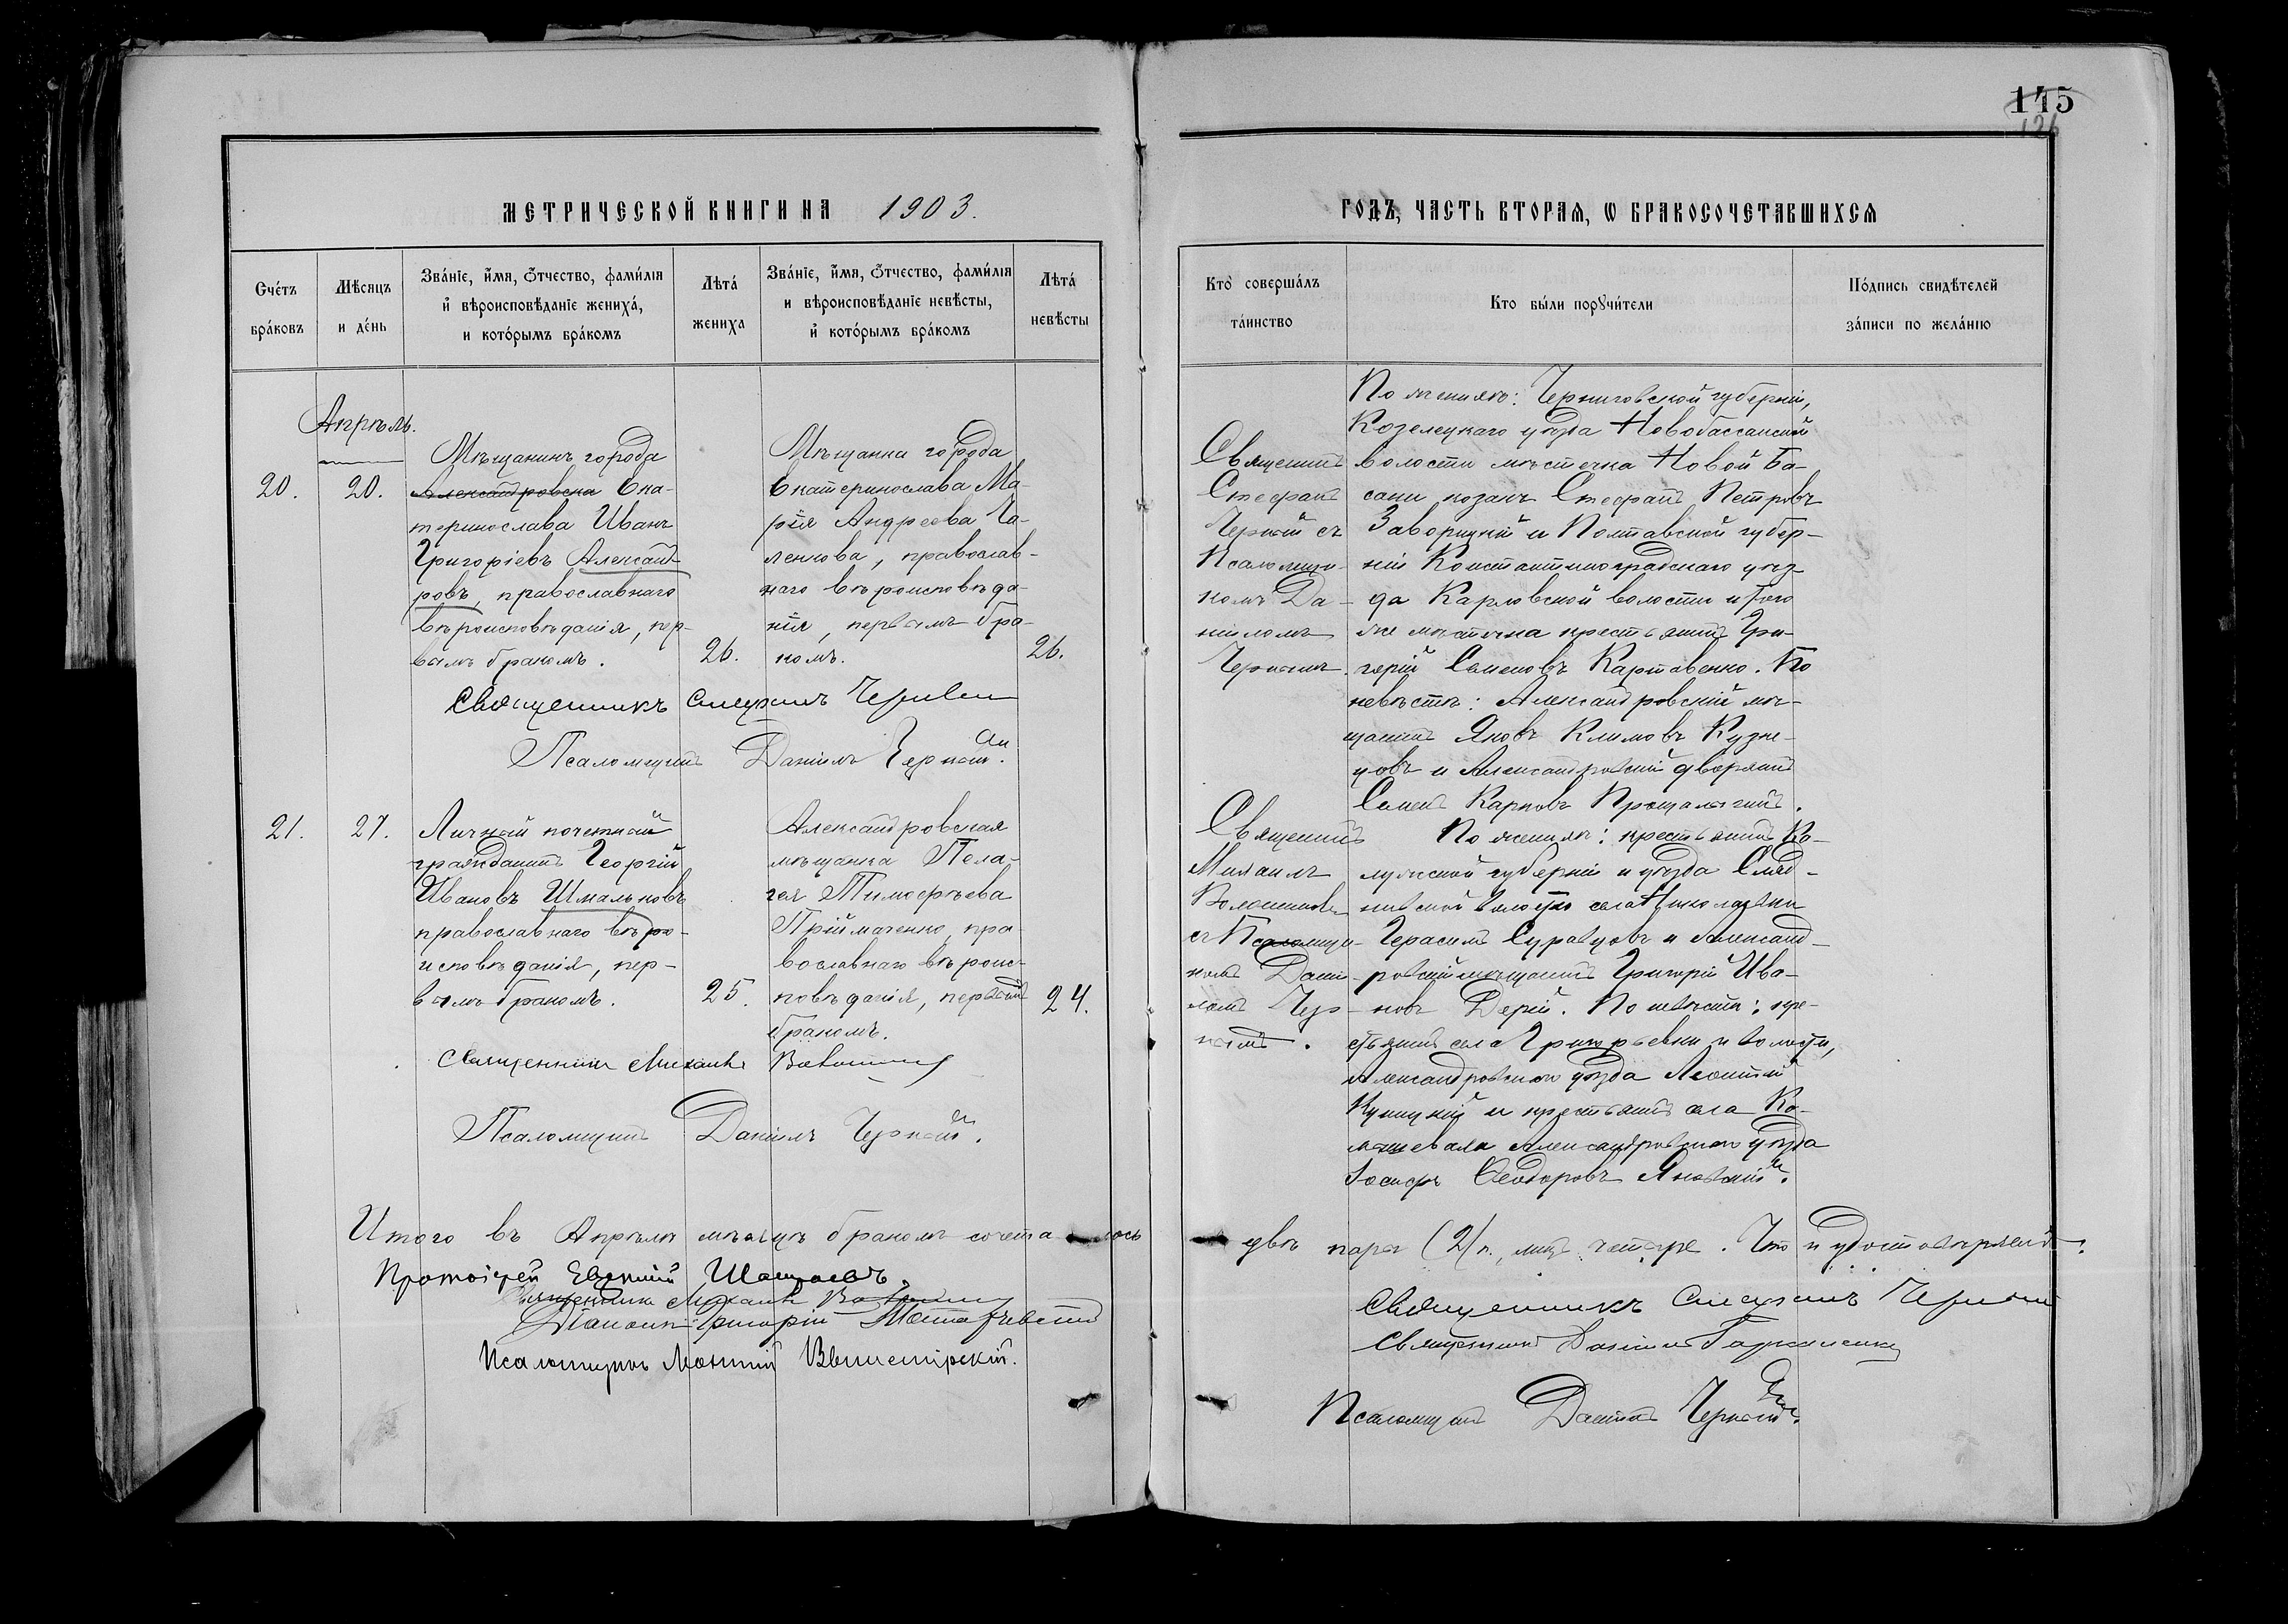 145
126
МЕТРИЧЕСКОЙ КНИГИ НА 1903.
ГОДЪ, ЧАСТЬ ВТОРАЯ, Ѡ БРАКОСОЧЕТАВШИХСЯ
Счéтъ брáковъ
Мѣсяцъ и дéнь
Звáніе, и́мя, ѻ́тчество, фами́лія и҆ вѣроисповѣ́даніе женихá, и котóрымъ брáкомъ
Лѣтá жениха
Звáніе, и́мя, ѻ́тчество, фами́лія и вѣроисповѣ́даніе невѣ́сты, и҆ котóрымъ брáкомъ
Лѣтá невѣсты
Кто̀ совершáлъ тáинство
Кто бы́ли порꙋчи́тели
Пóдпись свидѣ́телей зáписи по желáнію
Апрѣль.
20.
20.
Мѣщанинъ города
Александровска Ека-
теринослава Иванъ
Григоріевъ Александ
ровъ, православнаго
вѣроисповѣданія, пер-
вымъ бракомъ.
26.
Мѣщанка города
Екатеринослава Ма-
рія Андреева Га-
ленкова, православ-
наго вѣроисповѣда-
нія, первымъ бра-
комъ.
26.
Священникъ
Стефанъ
Черный съ
Псаломщи-
комъ Да-
ніиломъ
Чернымъ.
По женихѣ: Черниговской губерніи,
Козелецкаго уѣзда Новобассанской
волости мѣстечка Новой Ба-
сани козакъ Стефанъ Петровъ
Заворицкій и Полтавской губер-
ніи Константиноградскаго уѣз-
да Карловской волости и того
же мѣстечка крестьянинъ Гри-
горій Семеновъ Картавенко. По
невѣстѣ: Александровскій мѣ-
щанинъ Яковъ Климовъ Кузне-
цовъ и Александровскій дворянинъ
Семенъ Карповъ
Священникъ Стефанъ Черный
Псаломщикъ Даніилъ Черный.
21.
27.
Личный почетный
гражданинъ Георгій
Ивановъ Шмальковъ
православнаго вѣро-
исповѣданія, пер-
вымъ бракомъ.
25.
Александровская
мѣщанка Пела-
гея Тимофѣева
Пріймаченко, пра-
вославнаго вѣроис-
повѣданія, первымъ
бракомъ.
24.
Священникъ
Михаилъ
съ Псаломщи-
комъ Дані-
ломъ Чер-
нымъ.
По женихѣ: крестьянинъ Ка-
лужской губерніи и уѣзда
волости села Николаевки
Герасимъ Суравцовъ и Александ-
ровскій мѣщанинъ Григорій Ива-
новъ Дерій. По невѣстѣ: кре-
стьянинъ села Григорьевки и волости,
Александровскаго уѣзда Леонтій
Куницкій и крестьянинъ села Ко-
мышеваха Александровскаго уѣзда
Іосифъ Ѳеодоровъ Яновскій.
Священникъ Михаилъ
Псаломщикъ Даніилъ Черный.
Итого въ Апрѣлѣ мѣсяцѣ бракомъ сочеталось
двѣ пары (2) п., лицъ четыре. Что и удостовѣряемъ:
Протоіерей Евгеній
Священникъ Михаилъ
Діаконъ Григорій
Псаломщикъ Леонтій
Священникъ Стефанъ Черный
Священникъ Даніилъ
Псаломщикъ Даніилъ Черный.